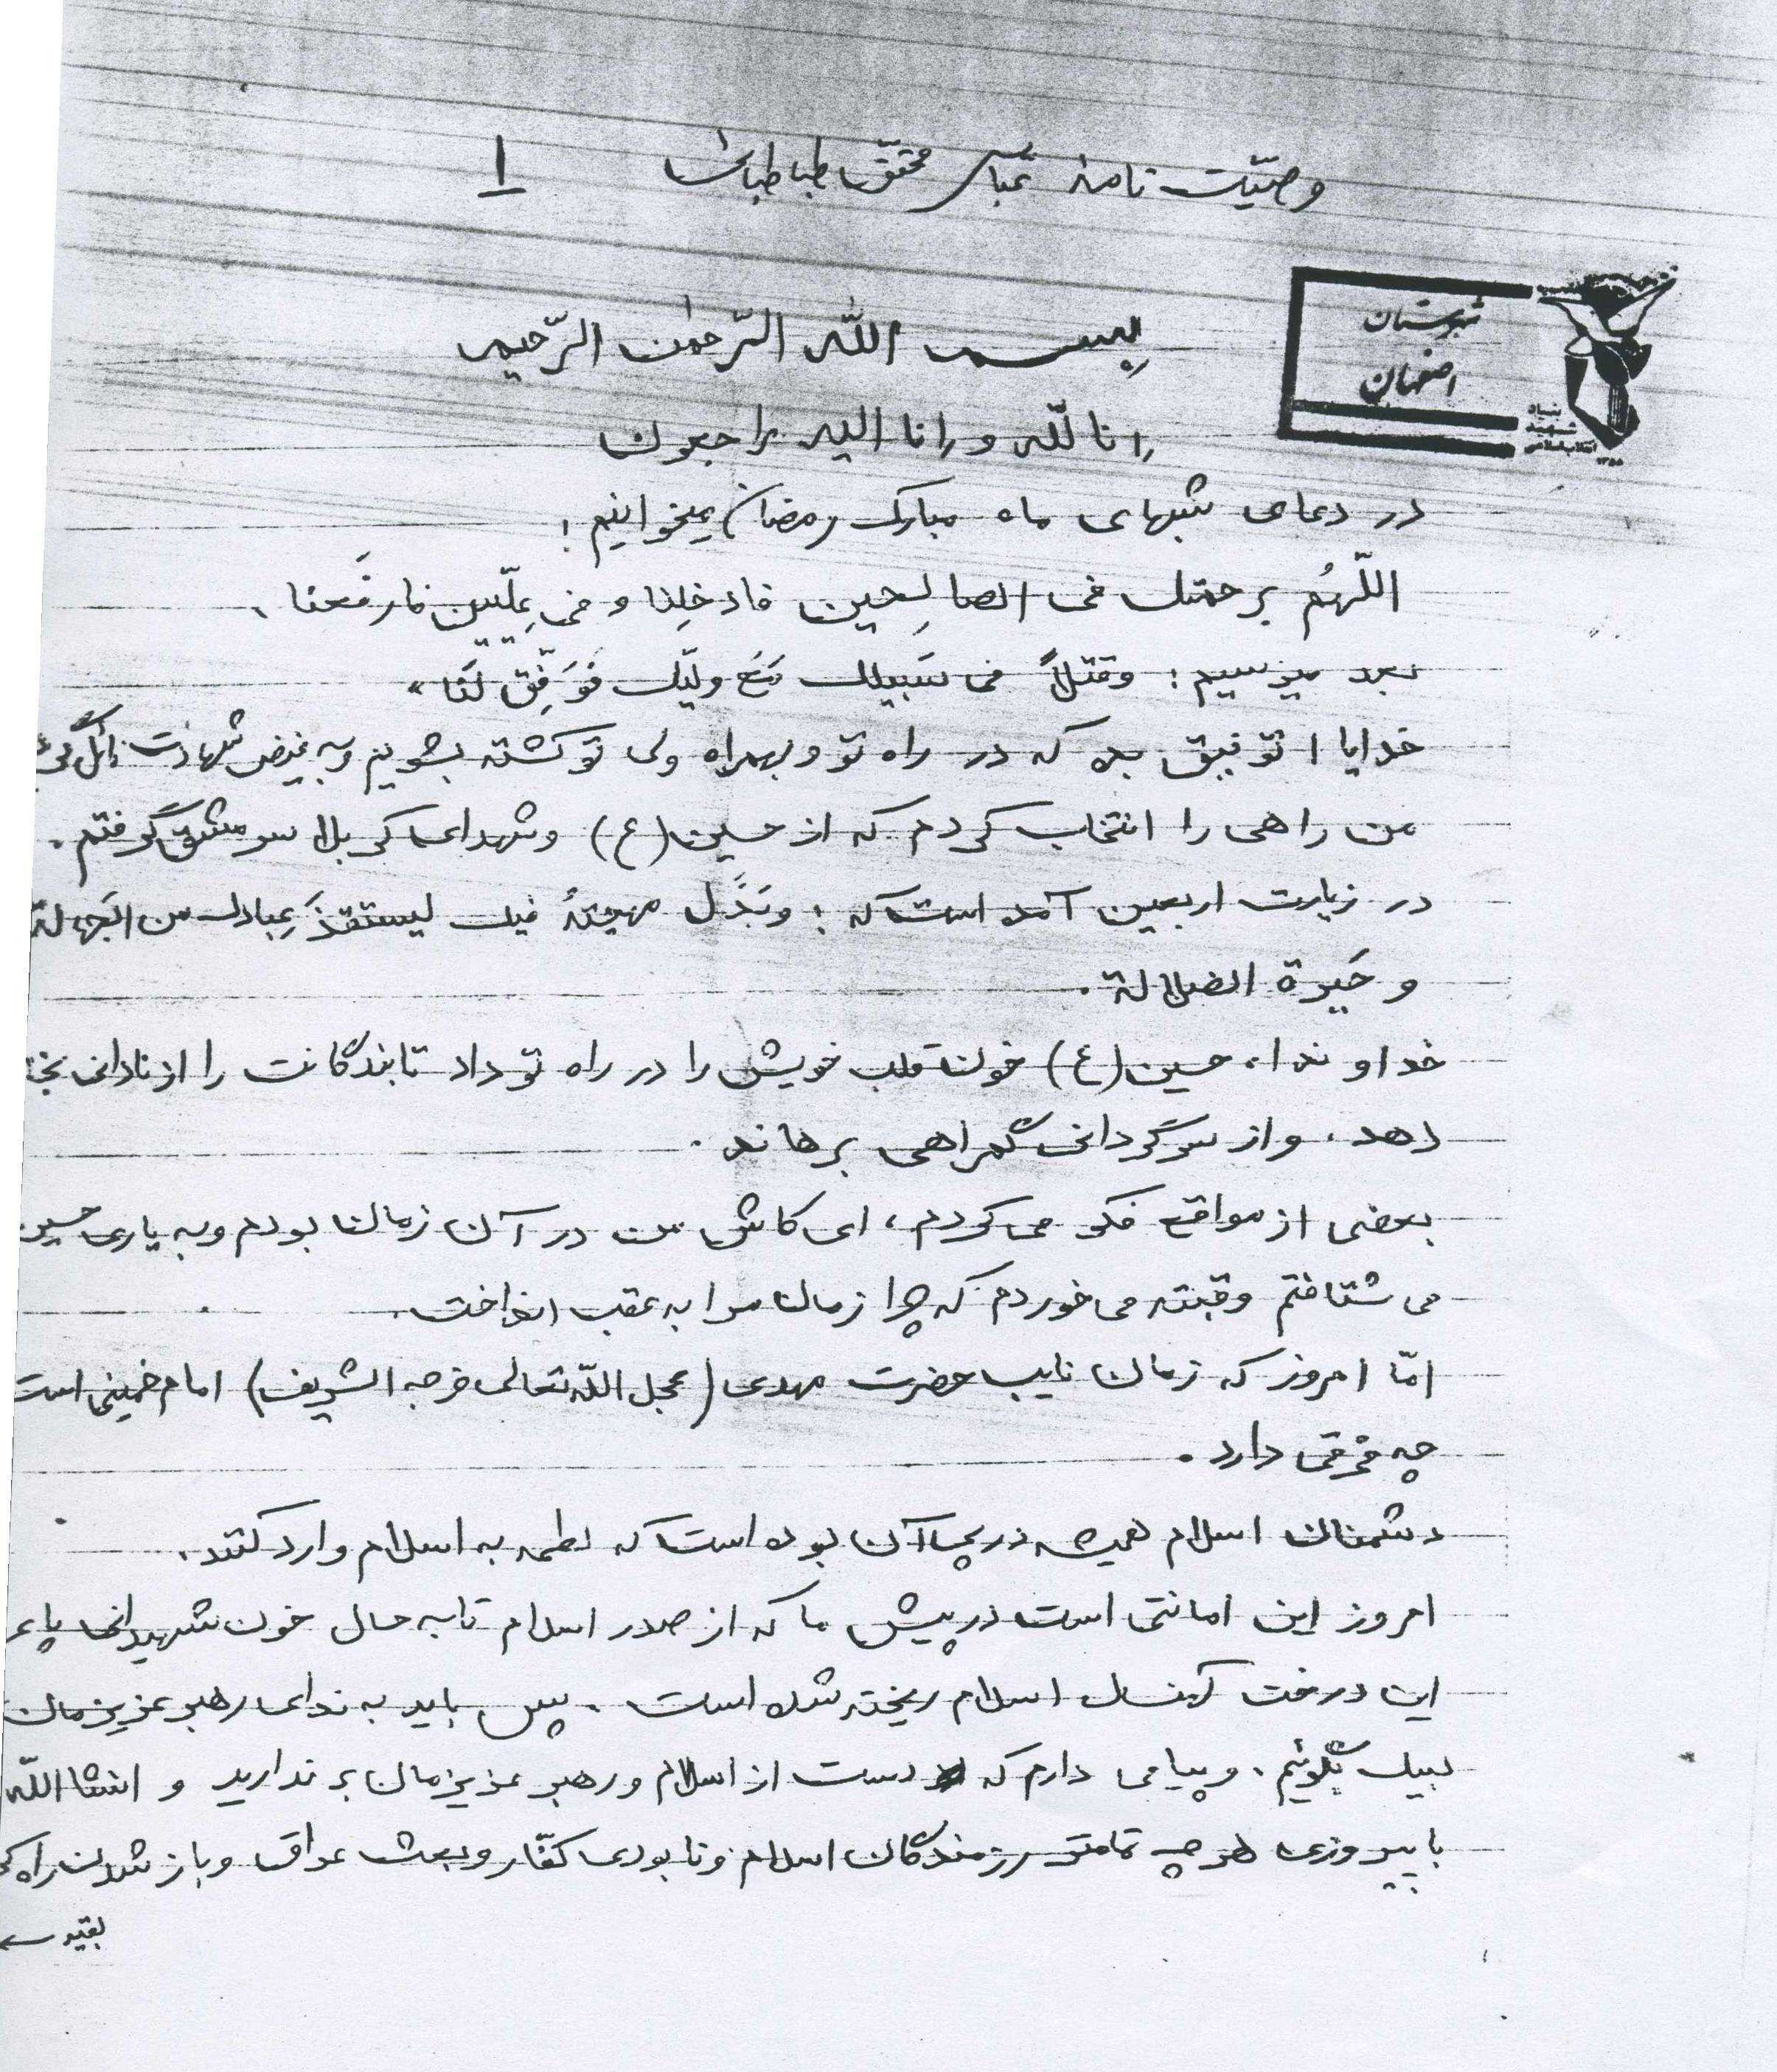 وصیّت نامهٔ عباس محقق طباطبائی ۱
شهرستان
اصفهان
بنیاد
شهید
انقلاب اسلامی
بِسم اللّه الرّحمٰن الرّحیم
اِنا للّه و اِنا الیه راجعون
در دعای شبهای ماه مبارک رمضان میخوانیم :
اللّهُم برحمتک فی الصالِحین فادخِلنا و فی عِلّیین فارفَعنا ،
بعد میرسیم : وقتلاً فی سَبیلک مَعَ ولیّک فَوَفِّق لَنا »
خدایا ! توفیق بده که در راه تو و بهمراه ولی تو کشته بشویم و به فیض شهادت نائل
من راهی را انتخاب کردم که از حسین (ع) و شهدای کربلا سرمشق گرفتم .
در زیارت اربعین آمده است که : و بَذَل مهجتهُ فیک لیستنقذَ عِبادک من الجَهالة
و حَیرة الضلالة .
خداوندا ، حسین (ع) خون قلب خویش را در راه تو داد تا بندگانت را از نادانی
دهد ، و از سرگردانی گمراهی برهاند .
بعضی از مواقع فکر می کردم ، ای کاش من در آن زمان بودم و به یاری حسین
می شتافتم و غبطه می خوردم که چرا زمان مرا به عقب انداخت .
امّا امروز که زمان نایب حضرت مهدی (عجل اللّه تعالی فرجه الشریف) امام خمینی است
چه فرقی دارد .
دشمنان اسلام همیشه در پی آن بوده است که لطمه به اسلام وارد کنند .
امروز این امانتی است در پیش ما که از صدر اسلام تا به حال خون شهیدانی پای
این درخت کهنسال اسلام ریخته شده است . پس باید به ندای رهبر عزیزمان
لبیک بگوئیم . و پیامی دارم که دست از اسلام و رهبر عزیزمان بر ندارید و انشااللّه
با پیروزی هر چه تمامتر رزمندگان اسلام و نابودی کفّار و بعث عراق و باز شدن راه
بقیه ←